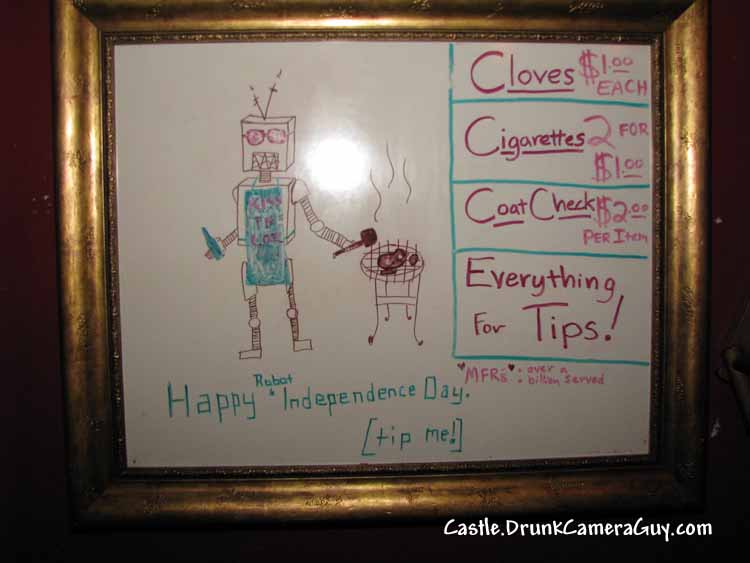 Cloves $1.00
EACH
Cigarettes 2 FOR
$1.00
Coat Check $2.00
PER Item
Everything
For Tips!
MFRs : over a
billion served
KISS
Happy Robot Independence Day.
[tip me!]
Castle.DrunkCameraGuy.com